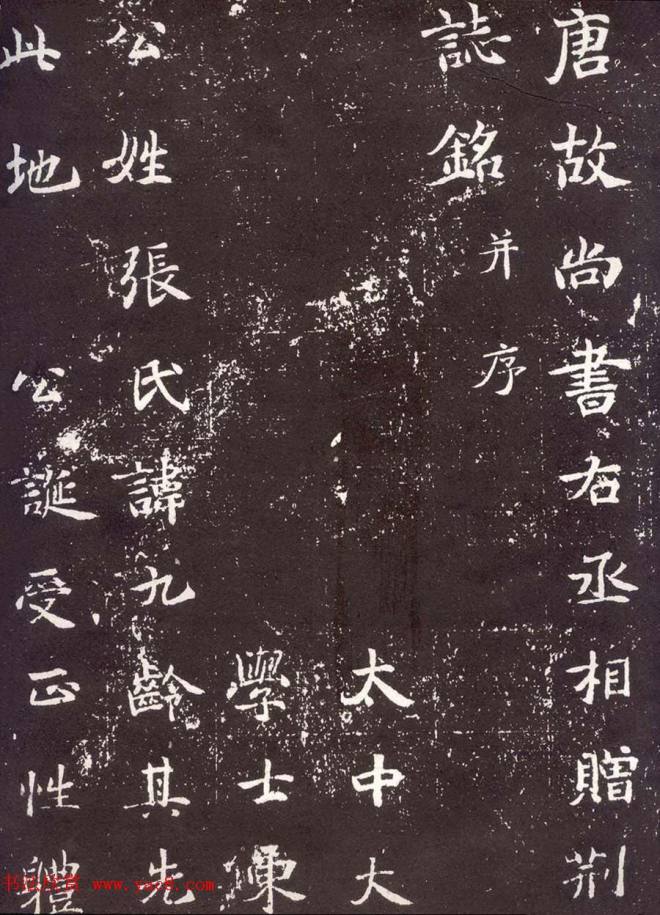 唐故尚書右丞相贈荆
誌銘并序
太中大
學士陳
公姓張氏諱九齡其先
此地公誕受正性體
书法欣赏 www.yac8.com